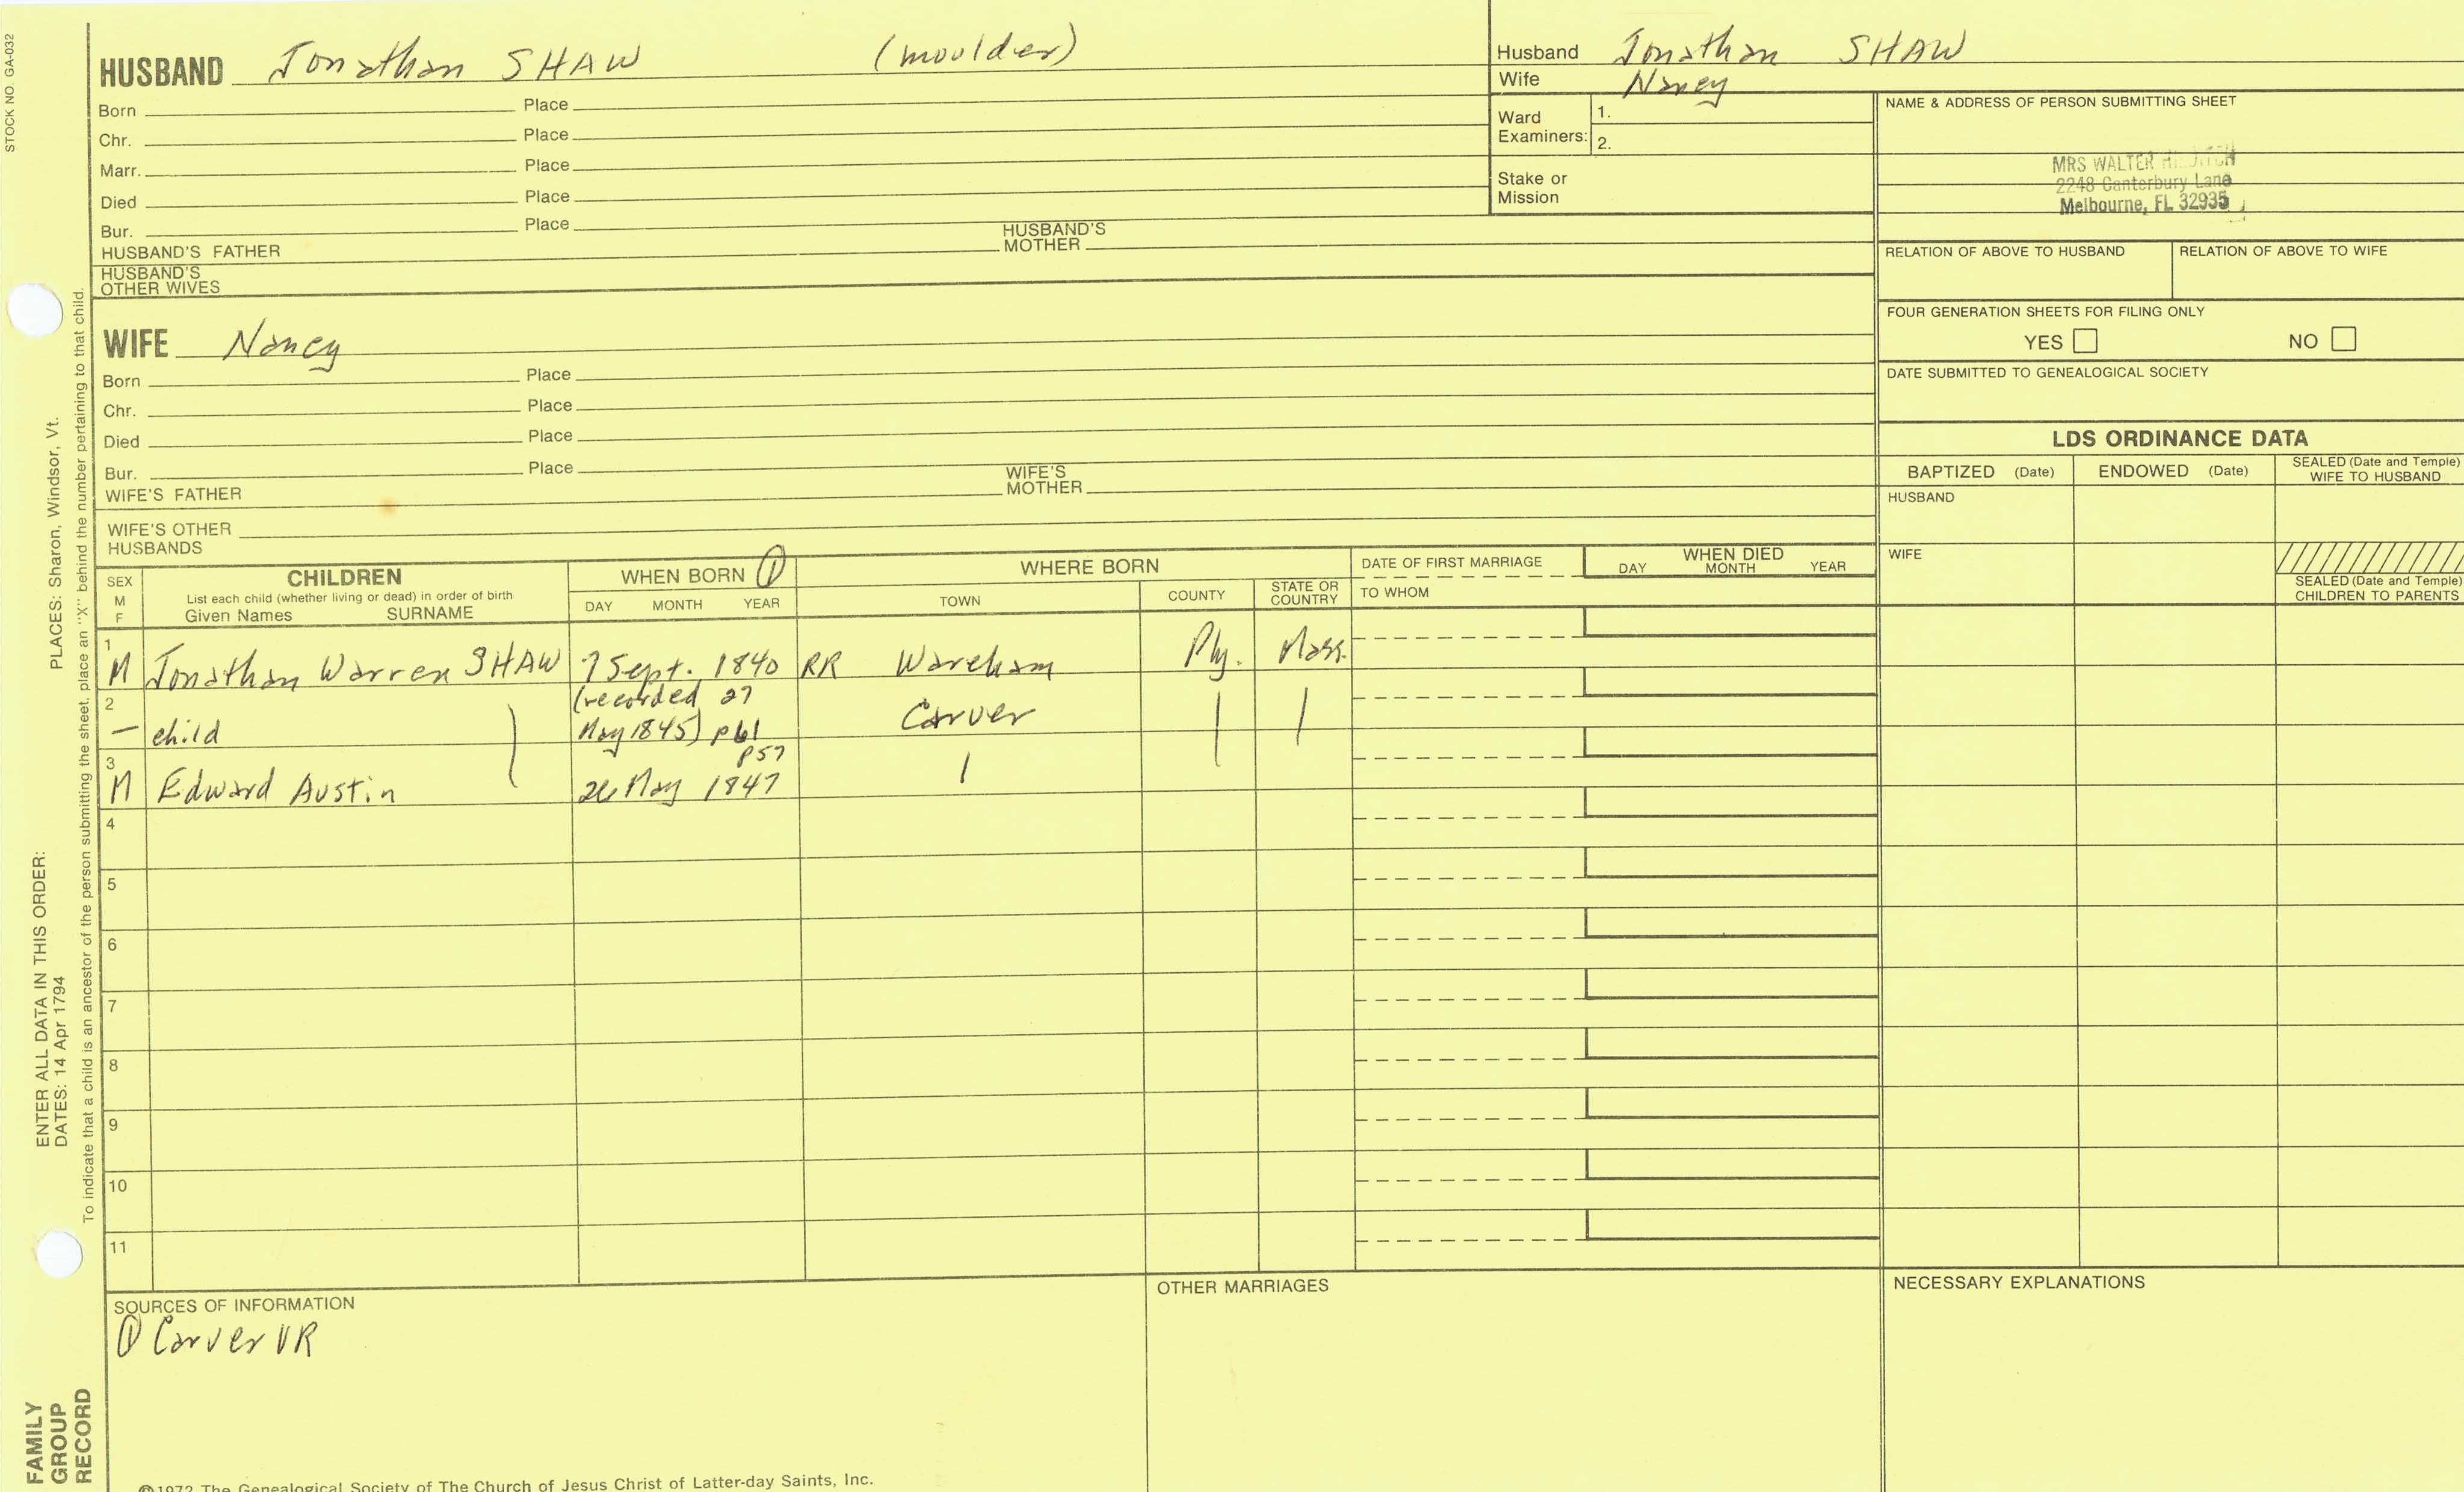 STOCK NO. GA-032
HUSBAND Jonathan SHAW (moulder)
Born Place
Chr. Place
Marr. Place
Died Place
Bur. Place
HUSBAND'S FATHER HUSBAND'S MOTHER
HUSBAND'S OTHER WIVES
WIFE Nancy
Born Place
Chr. Place
Died Place
Bur. Place
WIFE'S FATHER WIFE'S MOTHER
WIFE'S OTHER HUSBANDS
Husband Jonathan SHAW
Wife Nancy
Ward Examiners: 1.
2.
Stake or Mission
NAME & ADDRESS OF PERSON SUBMITTING SHEET
MRS WALTER
2248 Canterbury Lane
Melbourne, FL 32935
RELATION OF ABOVE TO HUSBAND RELATION OF ABOVE TO WIFE
FOUR GENERATION SHEETS FOR FILING ONLY
YES NO
DATE SUBMITTED TO GENEALOGICAL SOCIETY
LDS ORDINANCE DATA
BAPTIZED (Date) ENDOWED (Date) SEALED (Date and Temple) WIFE TO HUSBAND
HUSBAND
WIFE
SEALED (Date and Temple) CHILDREN TO PARENTS
SEX M F
CHILDREN
List each child (whether living or dead) in order of birth
Given Names SURNAME
WHEN BORN ①
DAY MONTH YEAR
WHERE BORN
TOWN COUNTY STATE OR COUNTRY
DATE OF FIRST MARRIAGE
TO WHOM
WHEN DIED
DAY MONTH YEAR
1 M Jonathan Warren SHAW 7 Sept. 1840 RR Wareham Ply. Mass.
2 — child (recorded 27 May 1845) p61 Carver
3 M Edward Austin p57 26 May 1847
4
5
6
7
8
9
10
11
SOURCES OF INFORMATION
① Carver VR
OTHER MARRIAGES
NECESSARY EXPLANATIONS
©1972 The Genealogical Society of The Church of Jesus Christ of Latter-day Saints, Inc.
FAMILY GROUP RECORD
ENTER ALL DATA IN THIS ORDER:
DATES: 14 Apr 1794
PLACES: Sharon, Windsor, Vt.
To indicate that a child is an ancestor of the person submitting the sheet, place an "X" behind the number pertaining to that child.